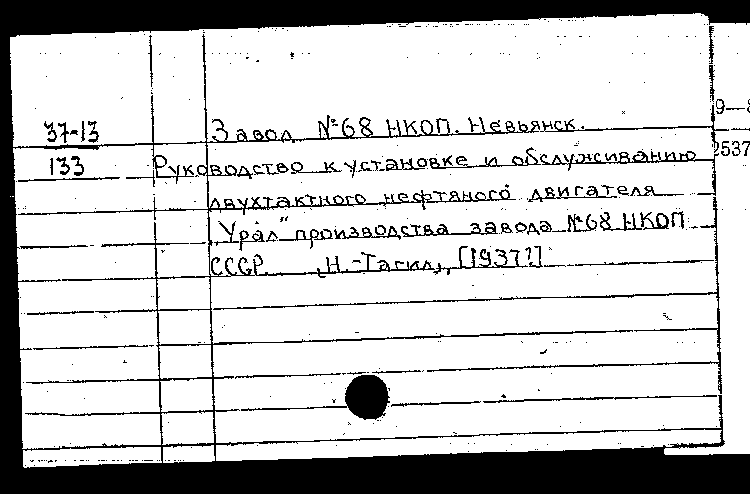 37-13
133
Завод №68 НКОП. Невьянск.
Руководство к установке и обслуживанию
двухтактного нефтяного двигателя
„Урал" производства завода №68 НКОП
СССР. „Н.-Тагил„, [1937?]
9—8
2537